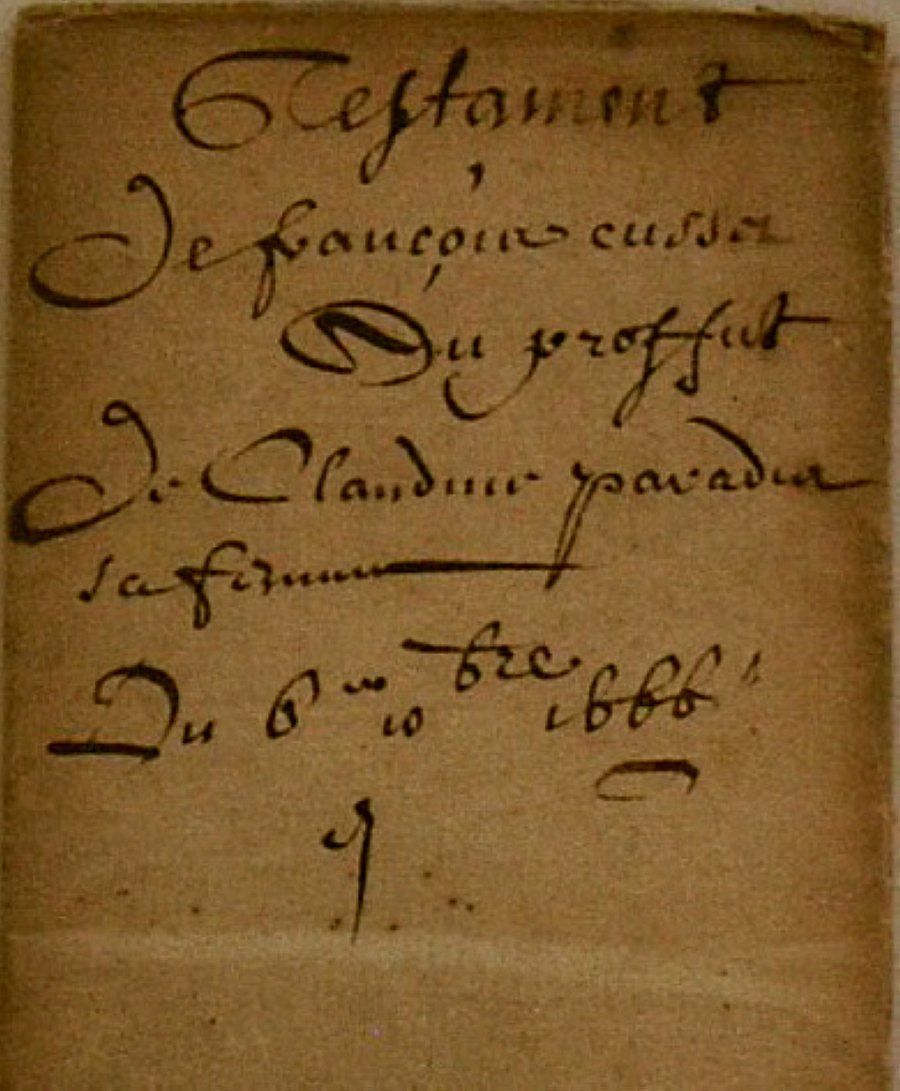 Testament
De françois cusset
Du proffit
De Claudine paradis
sa femme
Du 6me 10bre 1666